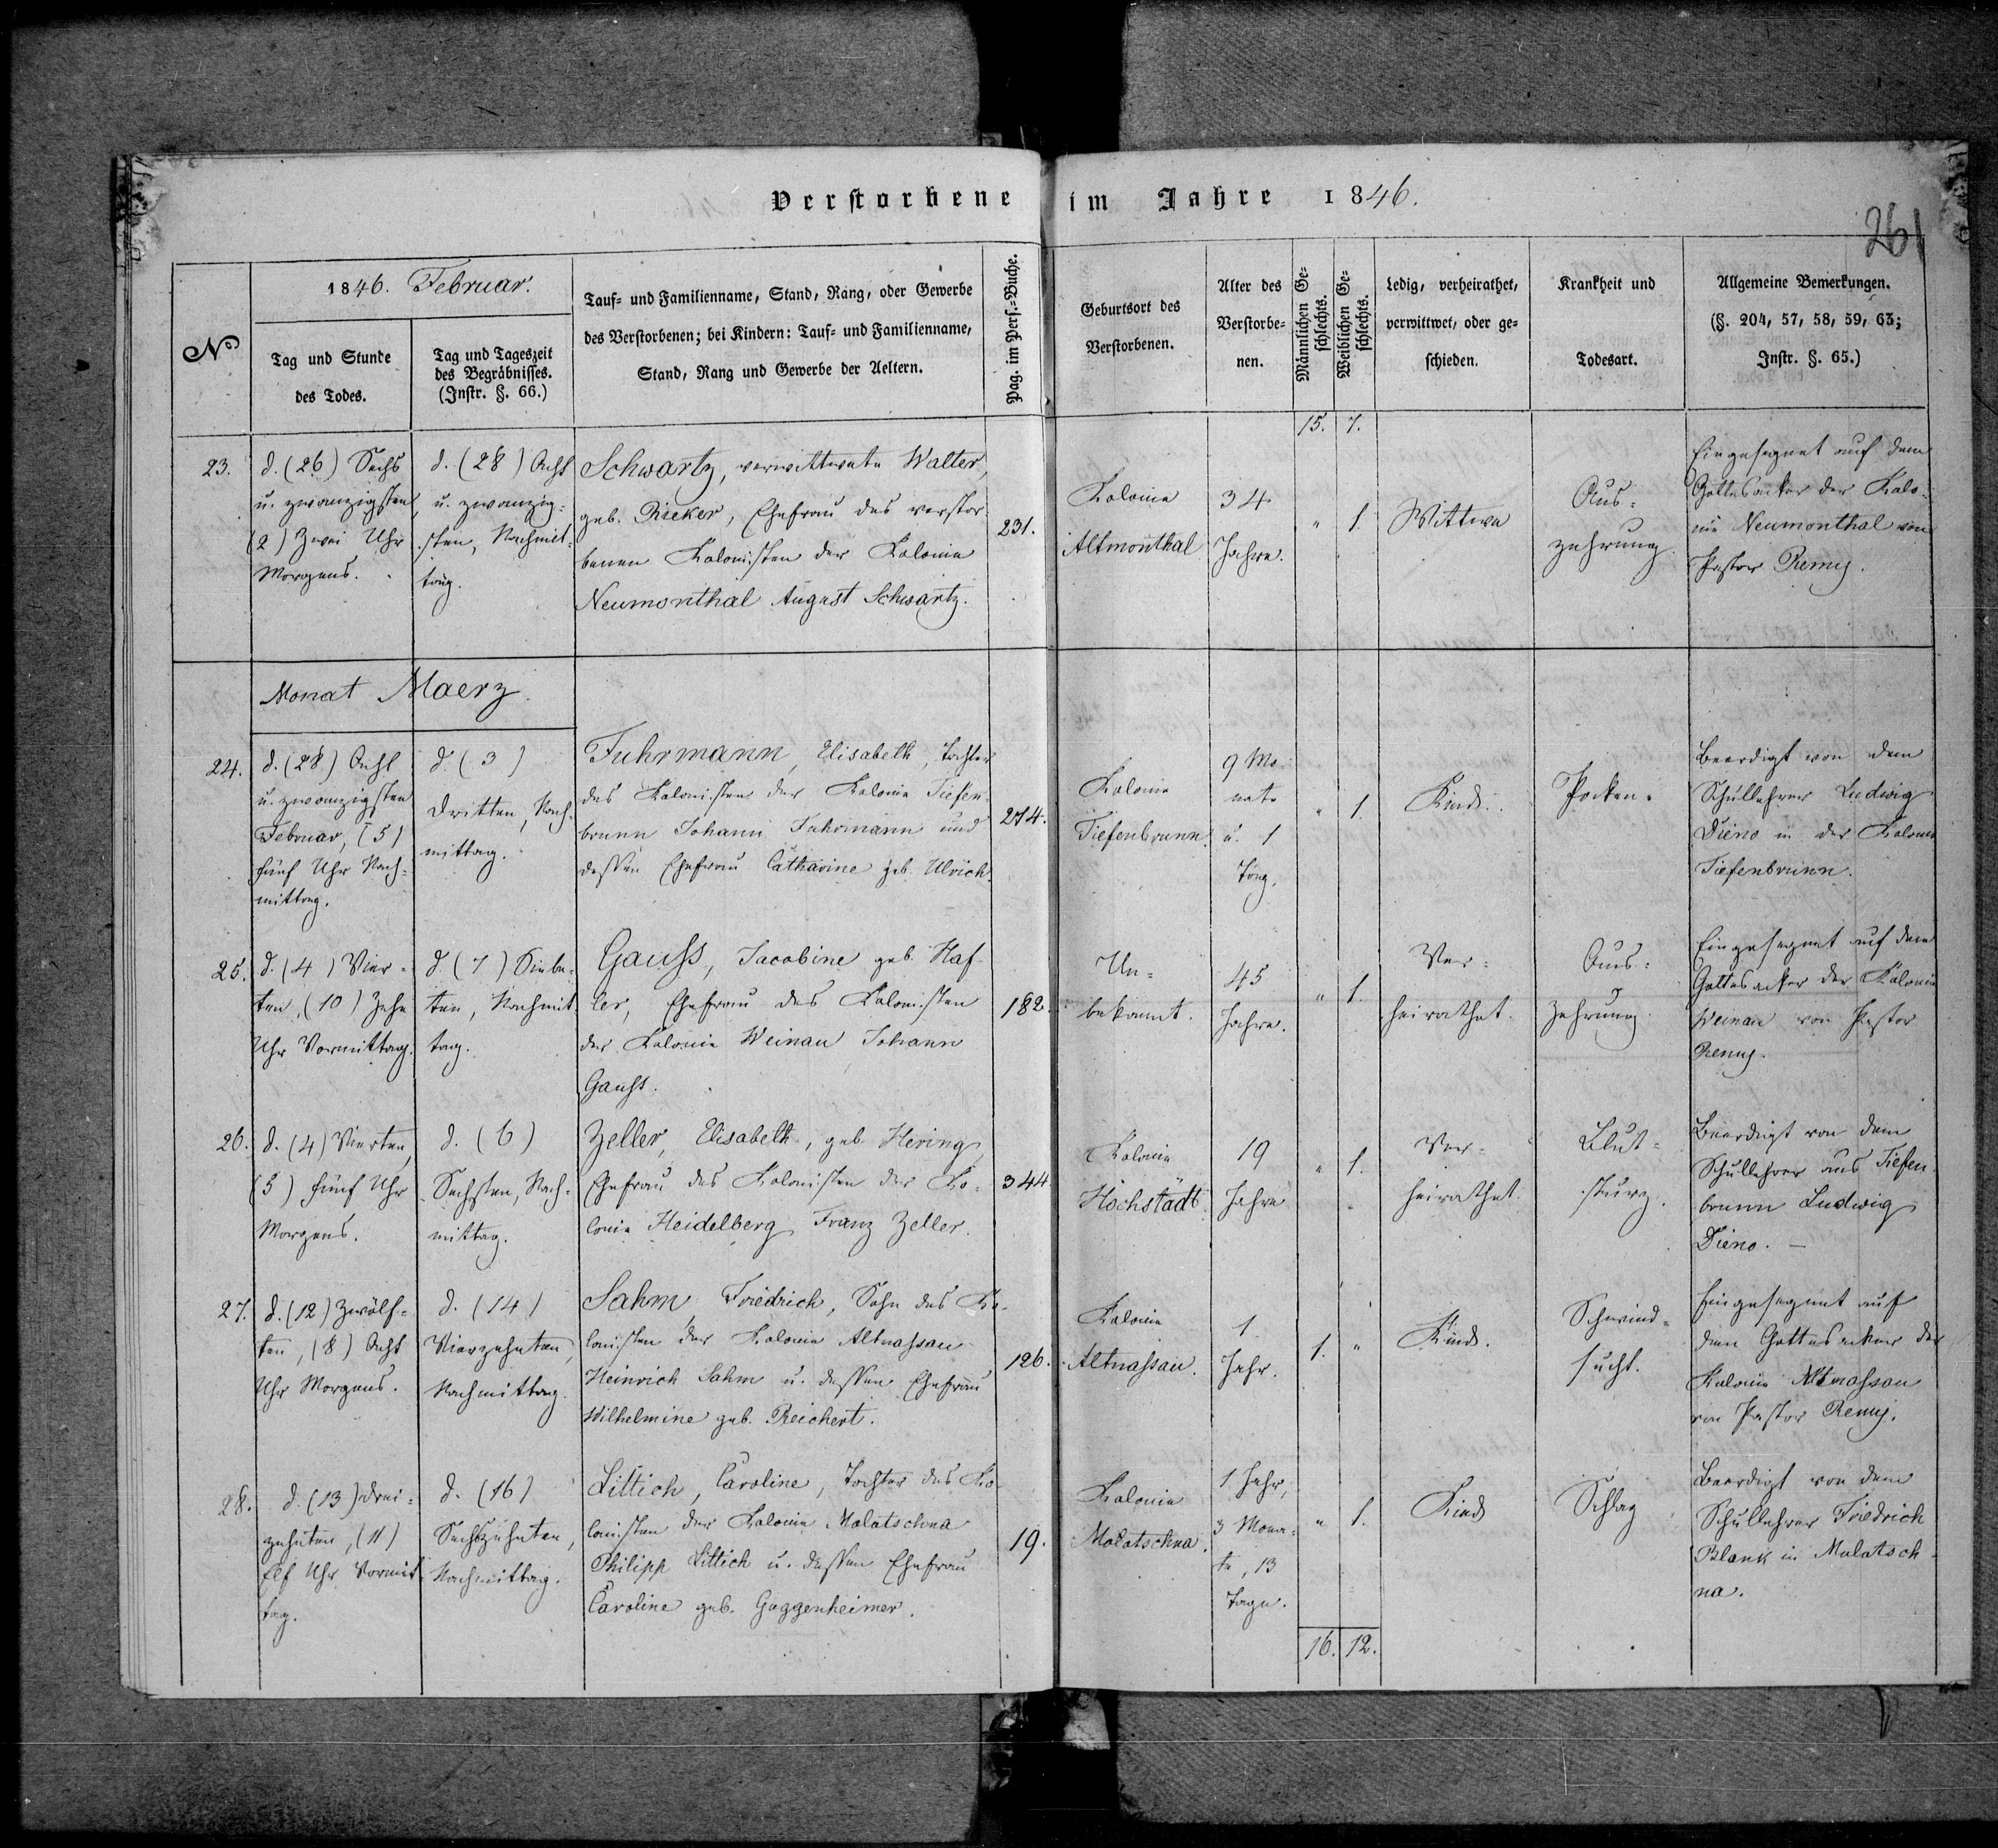 Verstorbene im Jahre 1846.
261
№
1846. Februar.
Tag und Stunde
des Todes.
Tag und Tageszeit
des Begräbnisses.
(Instr. §. 66.)
Tauf= und Familienname, Stand, Rang, oder Gewerbe
des Verstorbenen; bei Kindern: Tauf= und Familienname,
Stand, Rang und Gewerbe der Aeltern.
Pag. im Pers.=Buche.
Geburtsort des
Verstorbenen.
Alter des
Verstorbe=
nen.
Männlichen Ge=
schlechts.
Weiblichen Ge=
schlechts.
Ledig, verheirathet,
verwittwet, oder ge=
schieden.
Krankheit und
Todesart.
Allgemeine Bemerkungen.
(§. 204, 57, 58, 59, 63;
Instr. §. 65.)
15. 7.
23.
d. (26) Sechs
u. zwanzigsten,
(2) Zwei Uhr
Morgens.
d. (28) Acht
u. zwanzig=
sten, Nachmit=
tag.
Schwartz, verwittwete Walter,
geb. Rieker, Ehefrau des verstor
benen Kolonisten der Kolonie
Neumonthal August Schwartz.
231.
Kolonie
Altmonthal
34
Jahre.
" 1.
Wittwe
Aus=
zehrung.
Eingesegnet auf dem
Gottesacker der Kolo=
nie Neumonthal von
Pastor Remy.
Monat Maerz.
24.
d. (28) Acht
u. zwanzigsten
Februar, (5)
fünf Uhr Nach=
mittag.
d. (3)
Dritten, Nach=
mittag.
Fuhrmann, Elisabeth, Tochter
des Kolonisten der Kolonie Tiefen=
brunn Johann Fuhrmann und
dessen Ehefrau Catharine geb. Ulrich.
274.
Kolonie
Tiefenbrunn.
9 Mo
nate
u. 1
Tag.
" 1.
Kind.
Pocken.
Beerdigt von dem
Schullehrer Ludwig
Dieno in der Kolonie
Tiefenbrunn.
25.
d. (4) Vier=
ten, (10) Zehn
Uhr Vormittag.
d. (7) Sieben=
ten, Nachmit
tag.
Gauss, Jacobine geb. Haf=
ler, Ehefrau des Kolonisten
der Kolonie Weinau Johann
Gauss.
182.
Un=
bekannt.
45
Jahre.
" 1.
Ver=
heirathet.
Aus=
zehrung.
Eingesegnet auf dem
Gottesacker der Kolonie
Weinau von Pastor
Remy.
26.
d. (4) Vierten,
(5) fünf Uhr
Morgens.
d. (6)
Sechsten, Nach=
mittag.
Zeller, Elisabeth, geb. Hering,
Ehefrau des Kolonisten der Ko=
lonie Heidelberg Franz Zeller.
344.
Kolonie
Hochstädt.
19
Jahre
" 1.
Ver=
heirathet.
Blut=
sturz.
Beerdigt von dem
Schullehrer aus Tiefen
brunn Ludwig
Dieno. —
27.
d. (12) Zwölf=
ten, (8) Acht
Uhr Morgens.
d. (14)
Vierzehnten,
Nachmittag.
Sahm Friedrich, Sohn des Ko=
lonisten der Kolonie Altnassau
Heinrich Sahm u. dessen Ehefrau
Wilhelmine geb. Reichert.
126.
Kolonie
Altnassau.
1
Jahr.
1. "
Kind.
Schwind=
sucht.
Eingesegnet auf
dem Gottesacker der
Kolonie Altnassau
von Pastor Remy.
28.
d. (13) Drei=
zehnten, (11)
Elf Uhr Vormit
tag.
d. (16)
Sechszehnten,
Nachmittag.
Littich, Caroline, Tochter des Ko=
lonisten der Kolonie Molotschna
Philipp Littich u. dessen Ehefrau
Caroline geb. Guggenheimer.
19.
Kolonie
Molotschna.
1 Jahr,
3 Mona=
te, 13
Tage.
" 1.
Kind
Schlag
Beerdigt von dem
Schullehrer Friedrich
Blank in Molotsch
na.
16. 12.